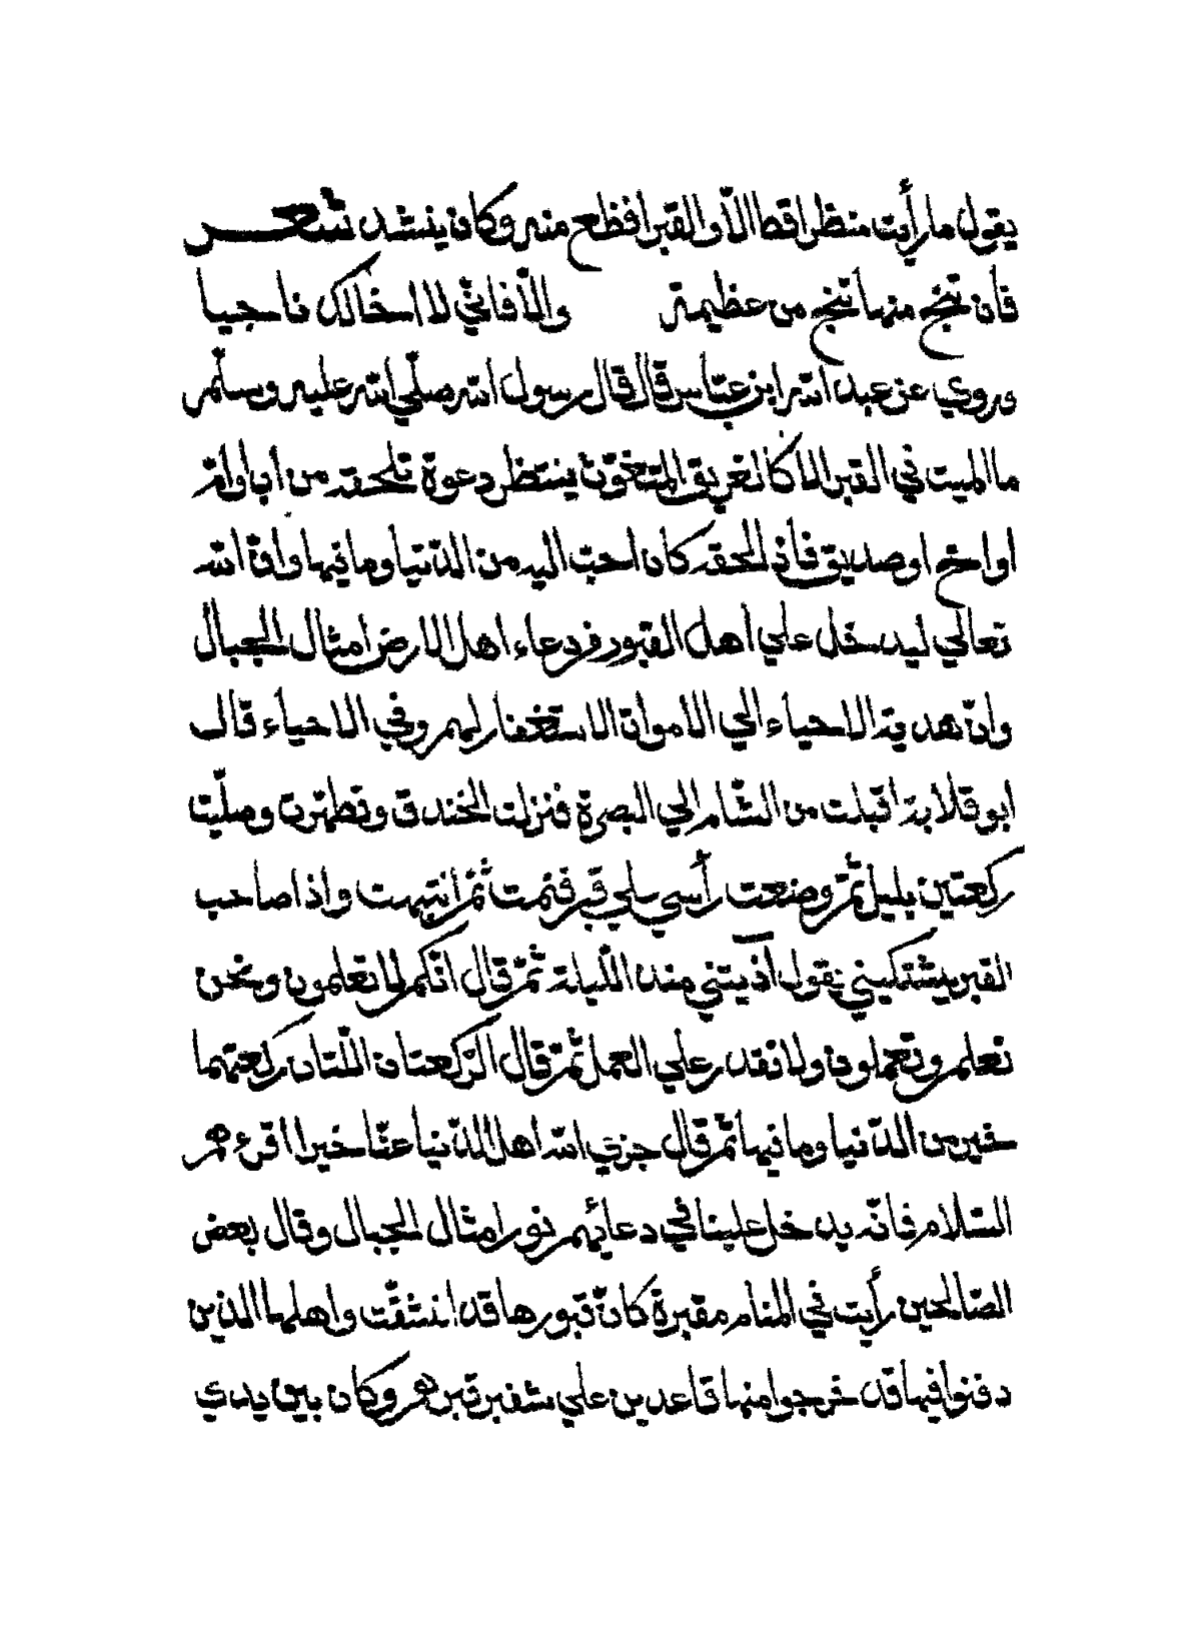 يقول ما رأيت منظرا قط الّا والقبر افظع منه وكان ينشد شعر
فأن تنج منها تنج من عظيمة والّا فاني لا اخالك ناجيا
وروي عن عبد الله ابن عبّاس قال قال رسول الله صلّي الله عليه وسلّم
ما الميت في القبر الا كالغريق المتغوّث ينتظر دعوة تلحقه من أب او امّ
او اخ او صديق فاذ لحقه كان احبّ اليه من الدّنيا وما فيها وانّ الله
تعالي ليدخل علي اهل القبور فردعاء اهل الارض امثال الجبال
وانّ هدية الاحياء الي الاموات الاستغفار لهم وفي الاحياء قال
ابو قلابة اقبلت من الشّام الي البصرة فنزلت الخندق وتطهّرت وصلّيت
ركعتين بليل ثمّ وضعت رأسي علي قبر فنمت ثمّ انتبهت واذا صاحب
القبر يشتكيني يقول آذيتني منذ اللّيلة ثمّ قال انّكم لا تعلمون ونحن
نعلم وتعملون ولا نقدر علي العمل ثمّ قال الرّكعتان اللّتان ركعتهما
خير من الدّنيا وما فيها ثمّ قال جزي الله اهل الدّنيا عنّا خيرا اقرءهم
السّلام فانّه يدخل علينا في دعائهم نور امثال الجبال وقال بعض
الصّالحين رأيت في المنام مقبرة كانّ قبورها قد انشقّت واهلها الذين
دفنوا فيها قد خرجوا منها قاعدين علي شفير قبرهم وكان بين يدي